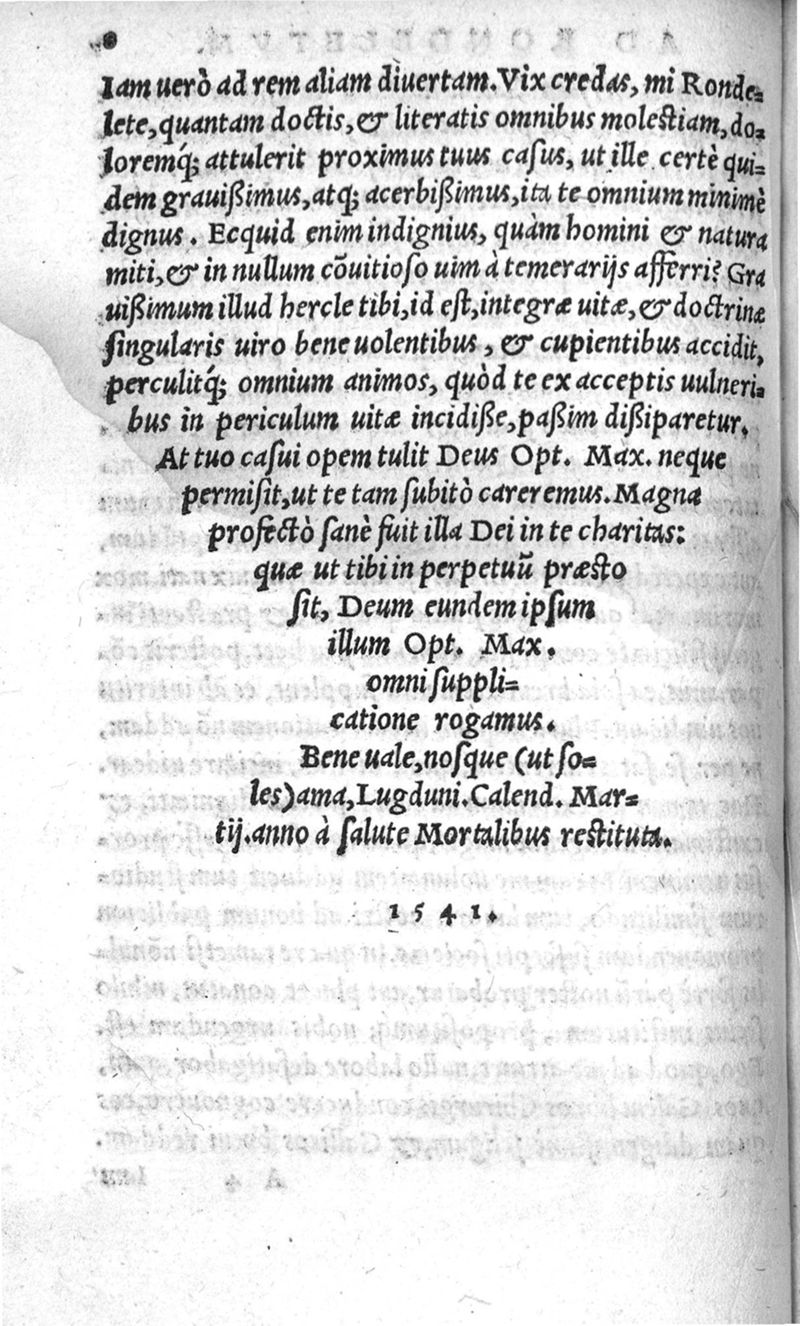 8
Iam uerò ad rem aliam diuertam. Vix credas, mi Ronde=
lete, quantam doctis, & literatis omnibus molestiam, do=
loremq́; attulerit proximus tuus casus, ut ille certè qui=
dem grauißimus, atq; acerbißimus, ita te omnium minimè
dignus. Ecquid enim indignius, quàm homini & natura
miti, & in nullum cōuitioso uim à temerarijs afferri? Gra
uißimum illud hercle tibi, id est, integræ uitæ, & doctrinæ
singularis uiro beneuolentibus, & cupientibus accidit,
perculitq́; omnium animos, quòd te ex acceptis uulneri=
bus in periculum uitæ incidiße, paßim dißiparetur.
At tuo casui opem tulit Deus Opt. Max. neque
permisit, ut te tam subitò careremus. Magna
profectò sanè fuit illa Dei in te charitas:
quæ ut tibi in perpetuū præsto
sit, Deum eundem ipsum
illum Opt. Max.
omni suppli=
catione rogamus.
Bene uale, nosque (ut so=
les) ama, Lugduni. Calend. Mar=
tij. anno à salute Mortalibus restituta.
1541.